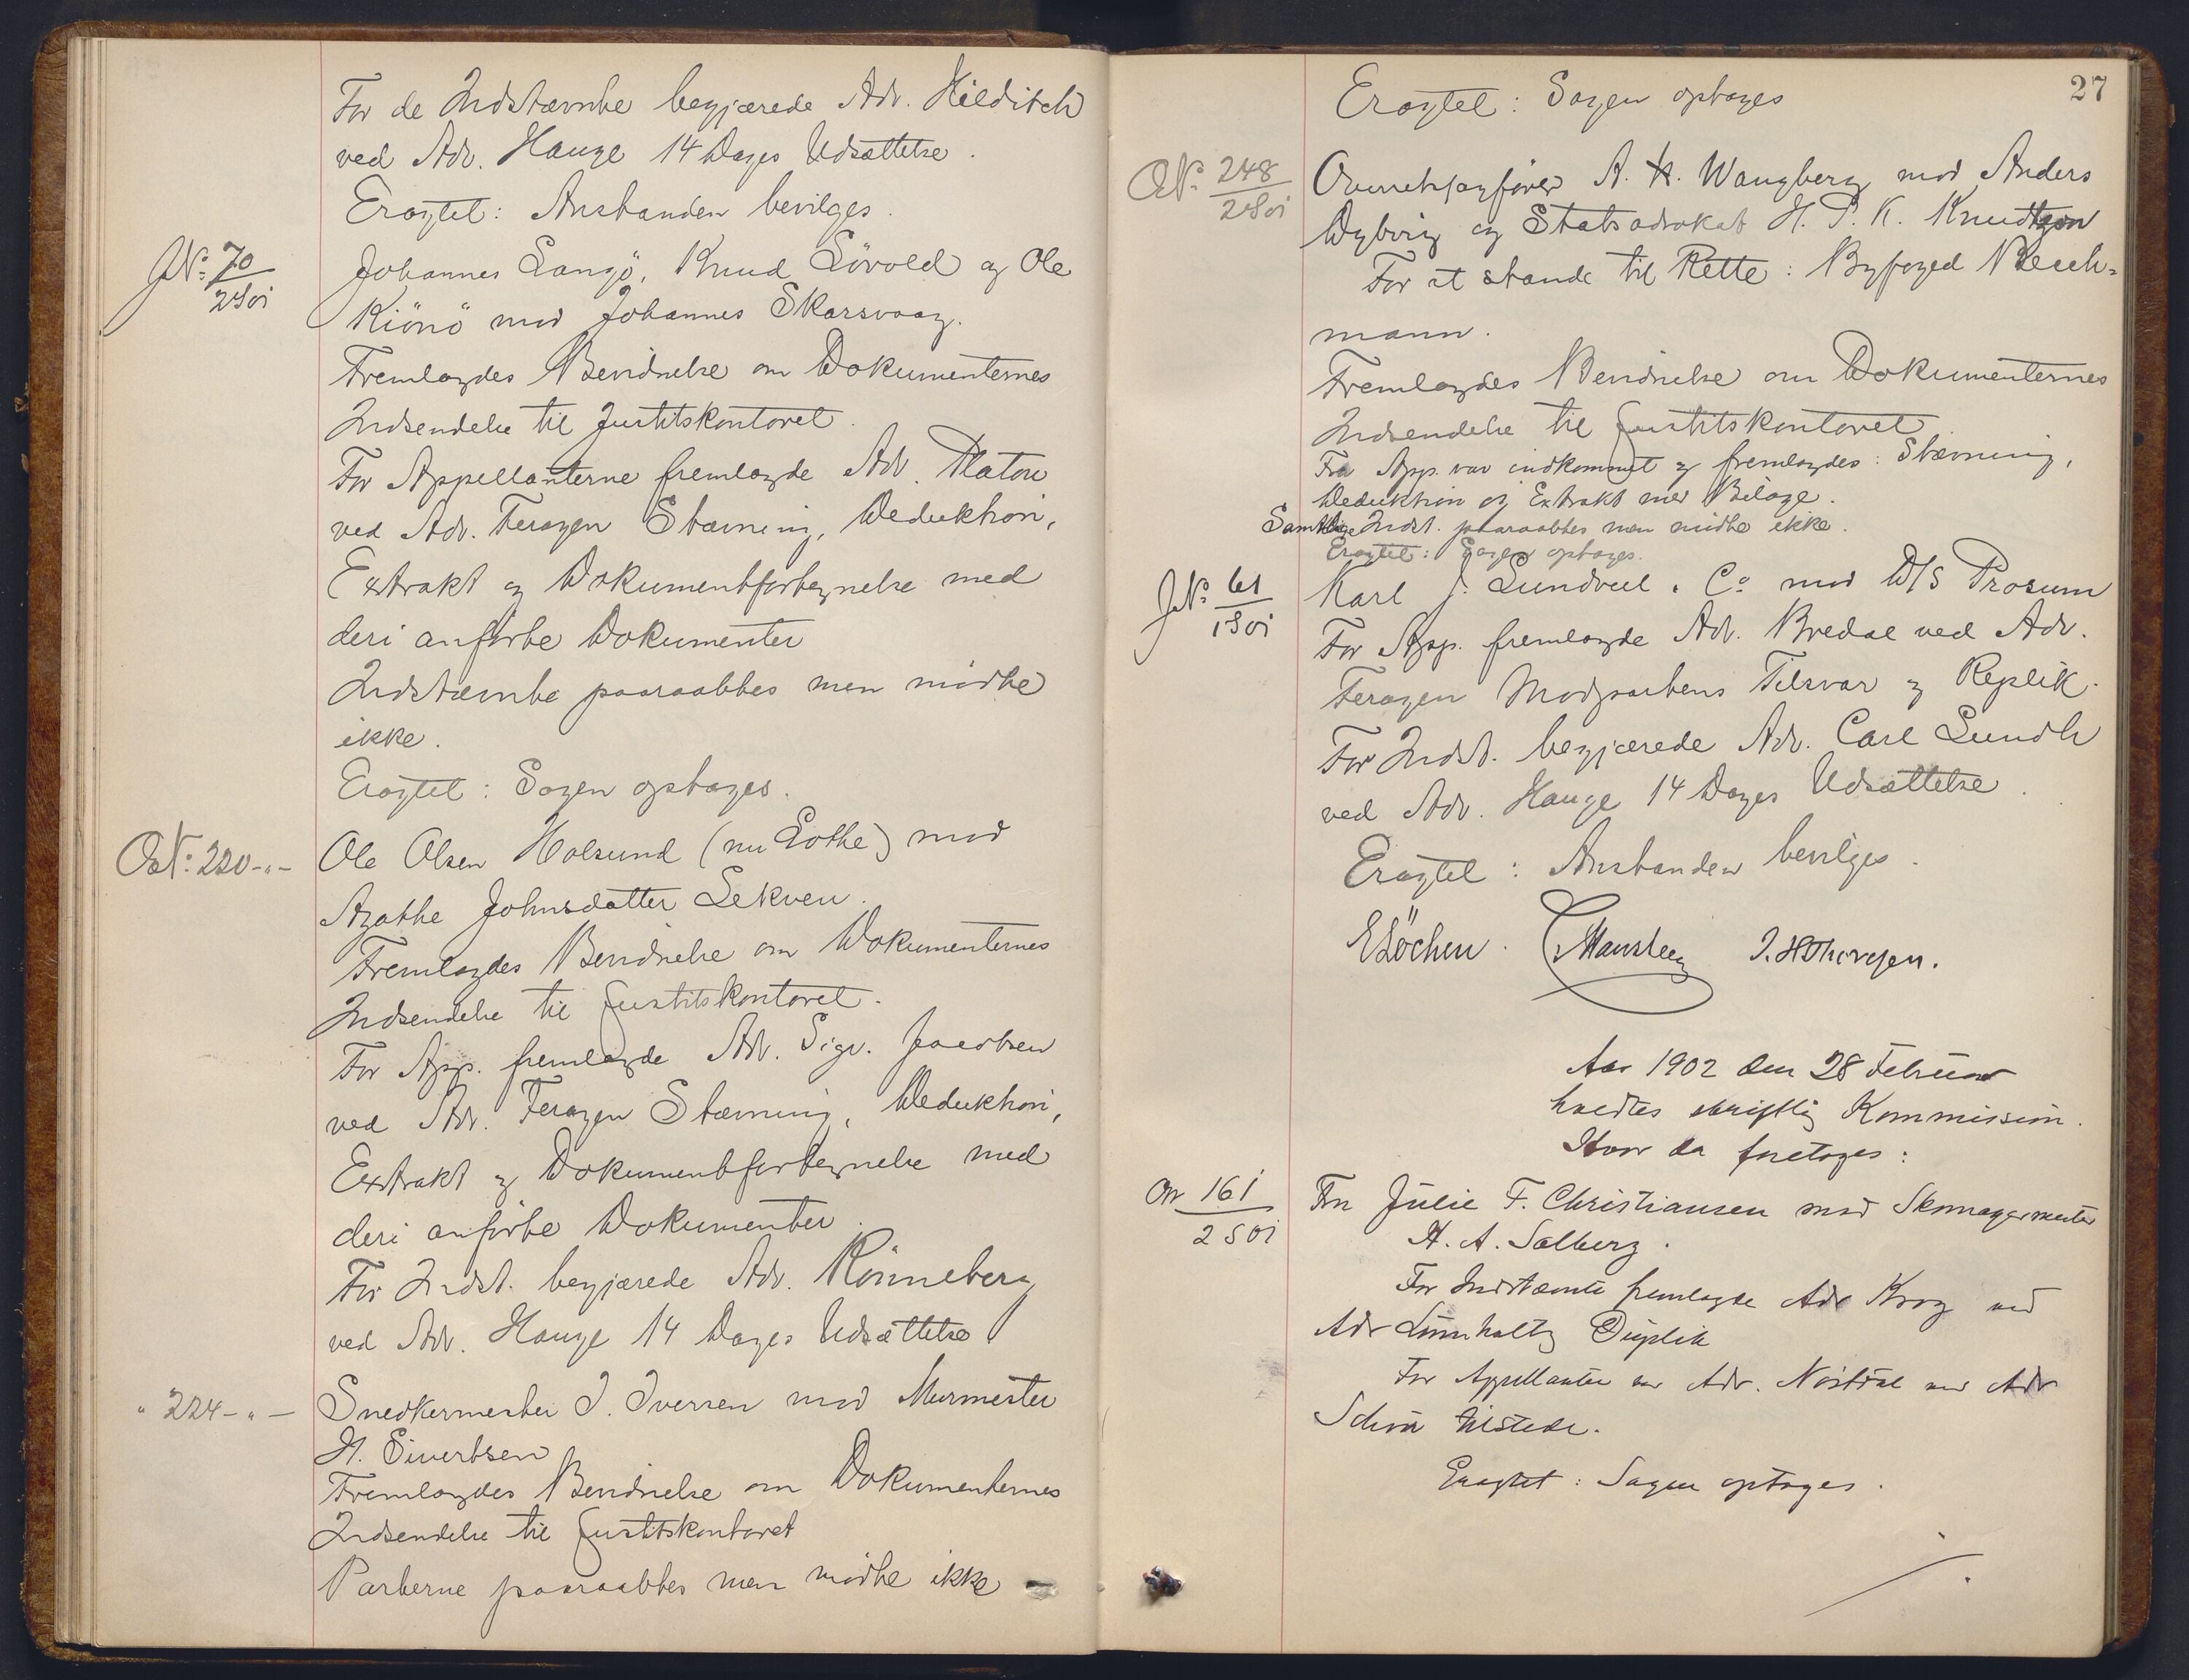 For de Indstævnte begjærede Adv. Hilditch
ved Adv. Hauge 14 Dages Udsættelse.
Eragtet: Anstanden bevilges.
JN: 70/2 S 01
Johannes Langö, Knud Lövold og Ole
Kiönö mod Johannes Skarsvaag.
Fremlagdes Bevidnelse om Dokumenternes
Indsendelse til Justitskontoret.
For Appellanterne fremlagde Adv. Platou
ved Adv. Feragen Stævning, Deduktion,
Extrakt og Dokumentfortegnelse med
deri anförte Dokumenter
Indstævnte paaraabtes men mödte
ikke.
Eragtet: Sagen optages.
ON: 220 - " -
Ole Olsen Holsund (nu Lothe) mod
Agathe Johnsdatter Lekven.
Fremlagdes Bevidnelse om Dokumenternes
Indsendelse til Justitskontoret.
For App. fremlagde Adv. Sigv. Jacobsen
ved Adv. Feragen Stævning, Deduktion,
Extrakt og Dokumentfortegnelse med
deri anförte Dokumenter.
For Indst. begjærede Adv. Rönneberg
ved Adv. Hauge 14 Dages Udsættelse
" 224 - " -
Snedkermester I. Iversen mod Murmester
H. Sivertsen
Fremlagdes Bevidnelse om Dokumenternes
Indsendelse til Justitskontoret
Parterne paaraabtes men mödte ikke
27
Eragtet: Sagen optages
ON: 248/2 S 01
Overretssagförer A. H. Wangberg mod Anders
Dybvig og Statsadvokat H. P. K. Knudtzon
For at stande til Rette: Byfoged
mann.
Fremlagdes Bevidnelse om Dokumenternes
Indsendelse til Justitskontoret.
Fra App. var indkommet og fremlagdes: Stævning,
Deduktion og Extrakt med Bilage.
Samtlige Indst. paaraabtes men mödte ikke.
Eragtet: Sagen optages.
JN: 61/1 S 01
Karl J. Lundvall & Co mod D/S Prosum
For App. fremlagde Adv. Bredal ved Adv.
Feragen Modpartens Tilsvar og Replik.
For Indst. begjærede Adv. Carl Lundh
ved Adv. Hauge 14 Dages Udsættelse.
Eragtet: Anstanden bevilges.
E Löchen. I. H Thoresen.
Aar 1902 den 28 Februar
holdtes skriftlig Kommission.
Hvor da foretoges:
ON 161/2 S 01
Fru Julie F. Christiansen mod Skomagermester
H. A. Salberg.
For Indstævnte fremlagde Adv Krog ved
Adv Duplik
For Appellanten var Adv. ved Adv
tilstede.
Eragtet: Sagen optages.